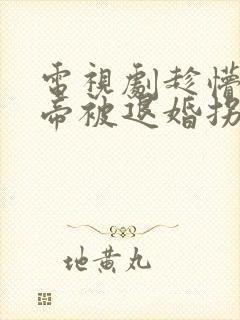 電視劇趁懵
帝被退婚拐
地黄丸